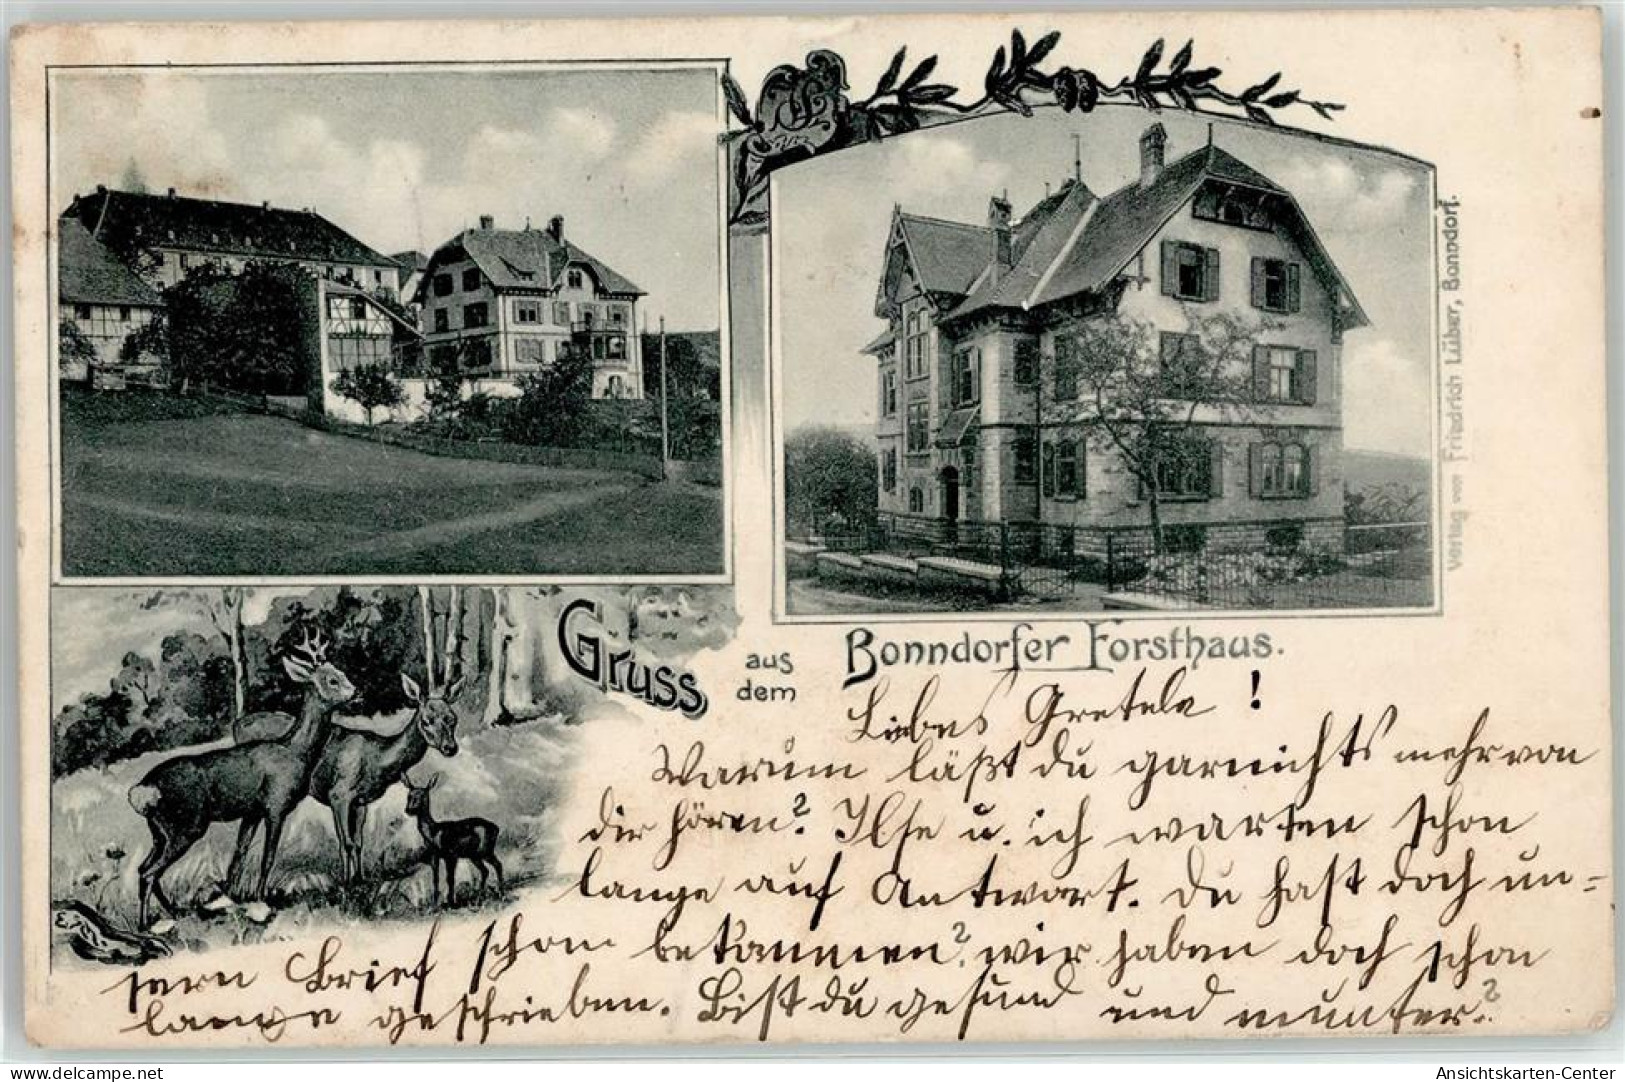 Gruss
aus
dem
Bonndorfer Forsthaus.
Verlag von Friedrich Lüber, Bonndorf.
Liebes Gretele !
Warum läßt du garnichts mehr von
dir hören? Ilse u. ich warten schon
lange auf Antwort. Du hast doch un=
sern Brief schon bekommen? wir haben doch schon
lange geschrieben. Bist du gesund und munter?
delcampe.net
Ansichtskarten-Center